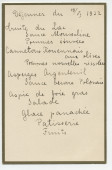 Déjeuner du 18/9 1922
Truite du Lac
Sauce Mousseline
Pommes vapeurs
Cannetons Rouennais
aux olives
Pommes nouvelles rissolées
Asperges Argenteuil
Sauce
Aspic de foie gras
Salade
Glace panachée
Patisserie
Fruits